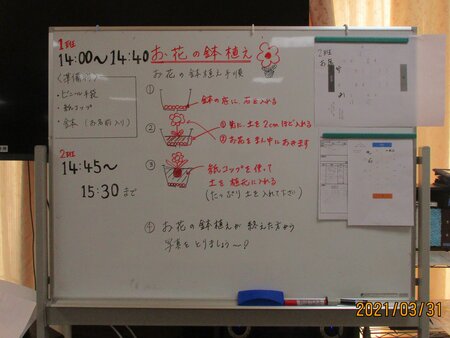 1班
14:00〜14:40
お花の鉢植え
お花の鉢植え手順
・ビニール手袋
・紙コップ
・鉢 (お名前入り)
① 鉢の底に、石を入れる
②
①更に、土を2cmほど入れる
②お花をまん中におきます
③ 紙コップを使って
土を植花に入れる
(たっぷり土を入れて下さい)
2班
14:45〜
15:30 まで
④ お花の鉢植えが終えた方から
写真をとりましょう〜?
2班
2021/03/31